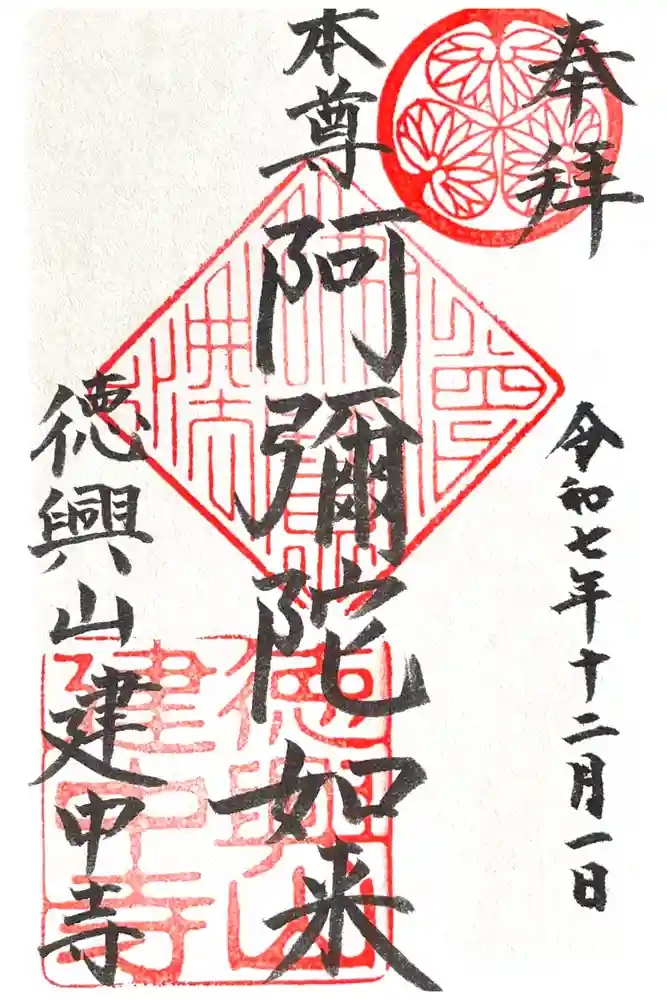 奉拝
令和七年十二月一日
本尊
阿彌陀如来
徳興山建中寺
徳興山
建中寺